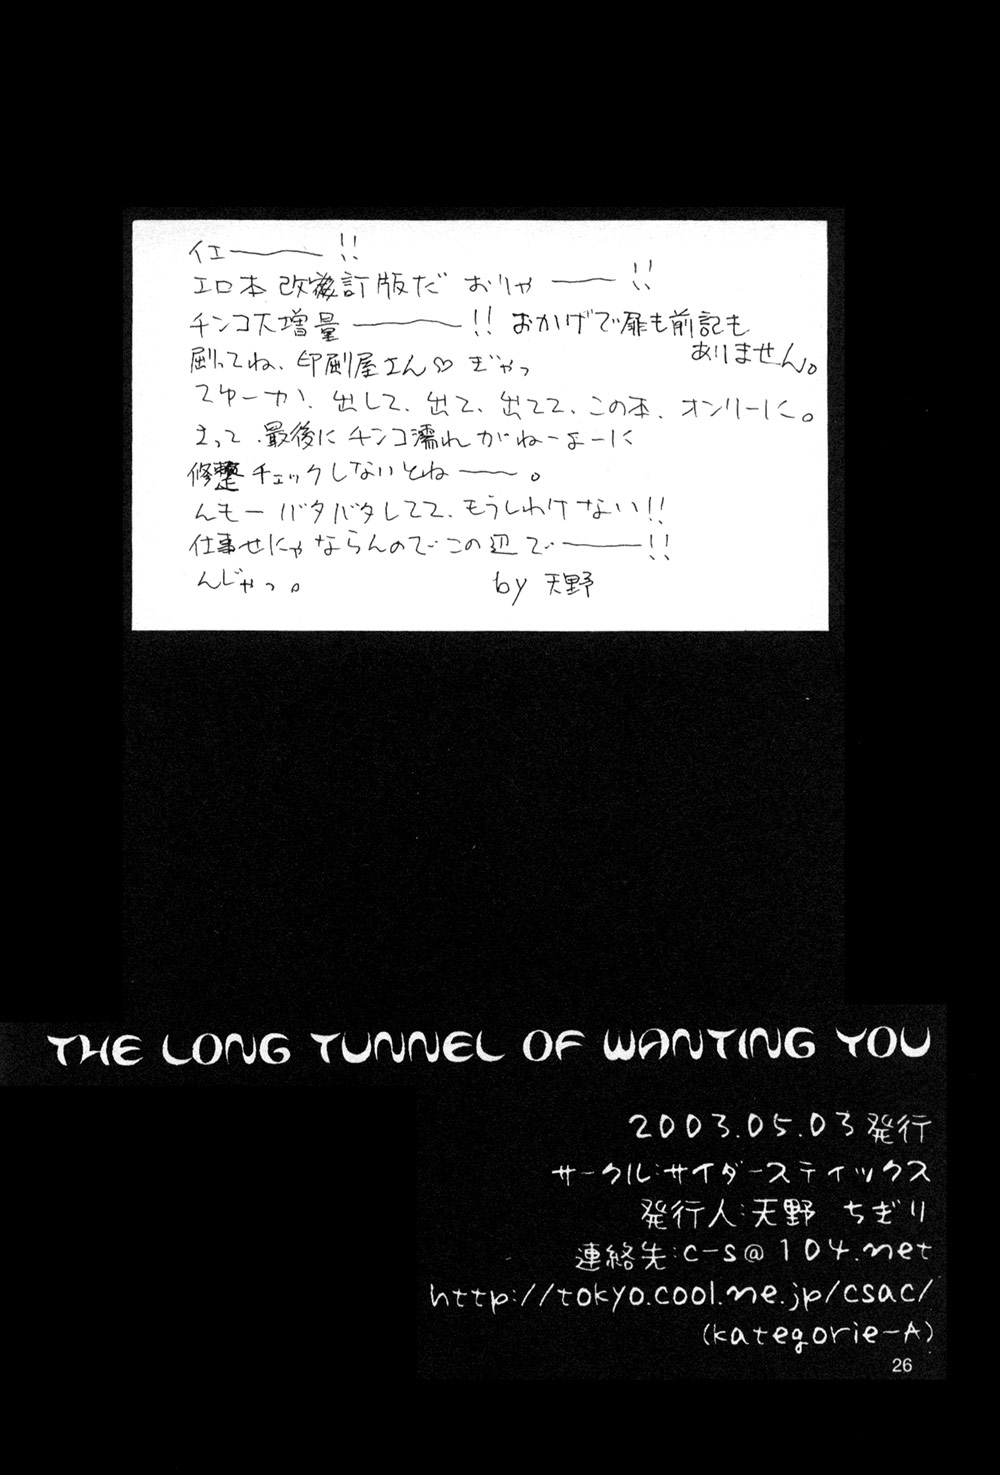 イエー!!
エロ本改後訂版だ おりゃー!!
チンコ大増量ー!! おかげで扉も前記も
ありません。
刷ってね、印刷屋さん♡ ぎゃっ
てゆーか、出して、出て、出てて、この本、オンリーに。
さって、最後にチンコ濡れがねーよーに
修整チェックしないとねー。
んもー バタバタしてて、もうしわけない!!
仕事せにゃならんのでこの辺でー!!
んじゃっ。 by 天野
THE LONG TUNNEL OF WANTING YOU
2003.05.03発行
サークル:サイダースティックス
発行人:天野 ちぎり
連絡先:c-s@104.net
http://tokyo.cool.ne.jp/csac/
(kategorie-A)
26